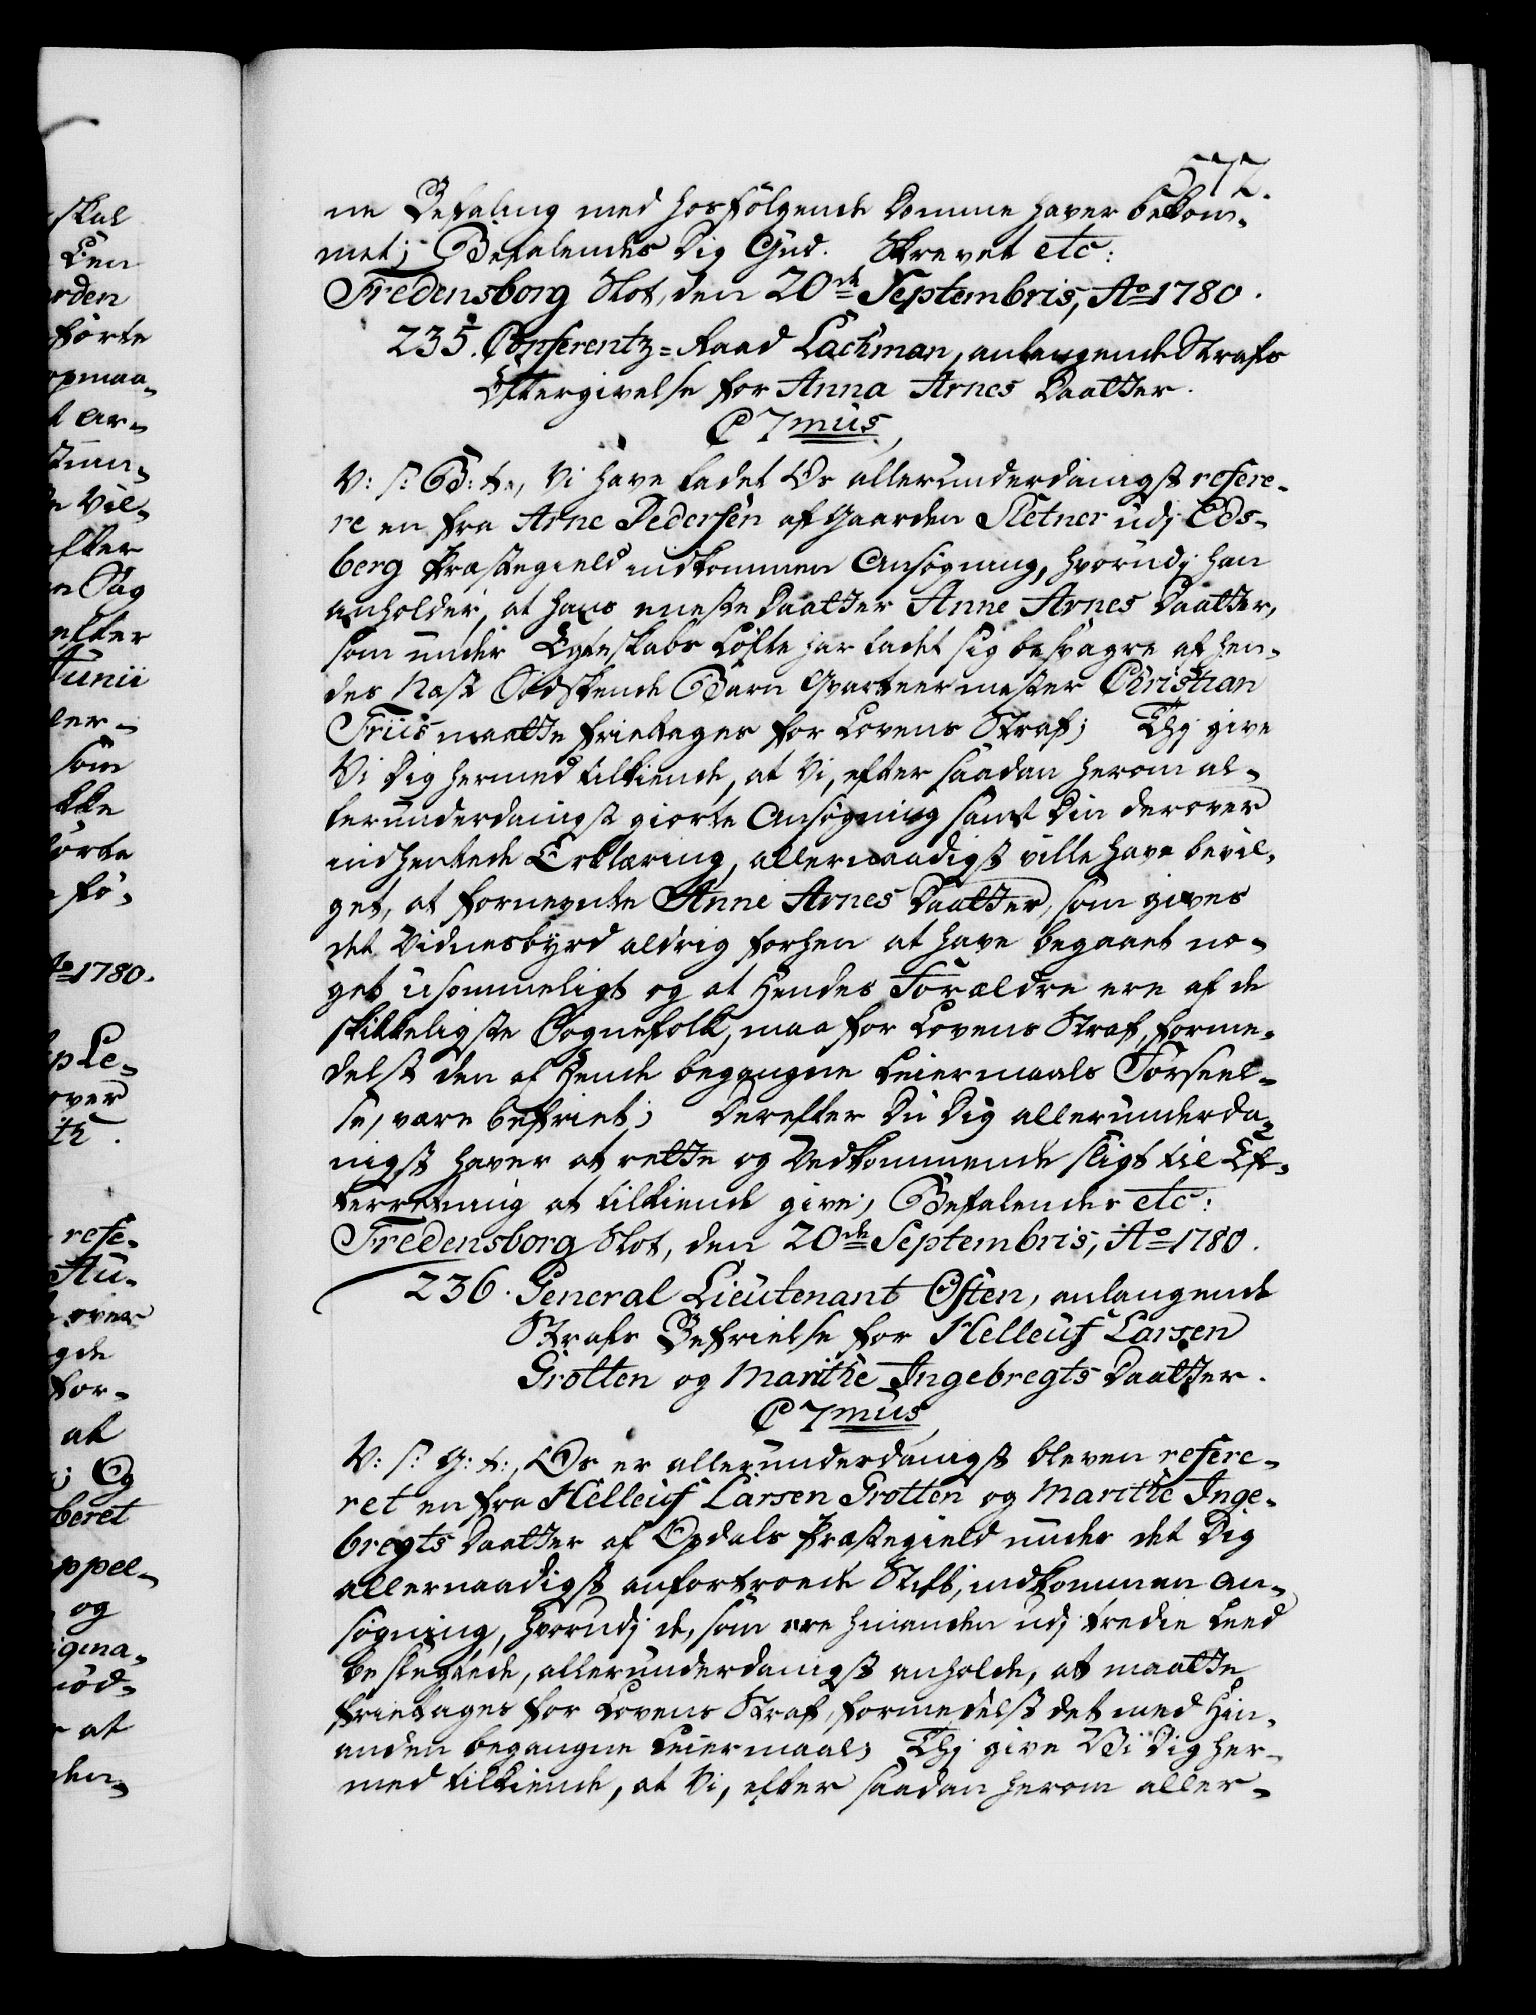 572.
ne Befaling med hosfölgende Domme haver bekom-
met; Befalendes Dig Gud. Skrevet etc:
Fredensborg Slot, den 20de Septembris, Ao 1780.
235. Conferentz-Raad Lachman, anlangende Strafs
Eftergivelse for Anna Arnes Daatter.
C 7mus
V: S: G: t:, Vi have ladet Os allerunderdanigst refere-
re en fra Arne Pedersen af Gaarden Sletner udj Eds-
berg Præstegield indkommen Ansøgning, hvorudj han
anholder, at hans eneste Daatter Anne Arnes Daatter,
som under Egteskabs Løfte har ladet sig besvagre af hen-
des Næst Sødskende Barn Qvarteermester Christian
Friis maatte frietages for Lovens Straf; Thj give
Vi Dig hermed tilkiende, at Vi, efter saadan herom al-
lerunderdanigst giorte Ansøgning samt Din derover
indhentede Erklæring, allernaadigst ville have bevil-
get, at fornevnte Anne Arnes Daatter, som gives
det Vidnesbyrd aldrig forhen at have begaaet no-
get usømmeligt og at Hendes Forældre ere af de
skikkeligste Sognefolk, maa for Lovens Straf, forme-
delst den af Hende begangne Leiermaals Forseel-
se, være befriet; Derefter Du Dig allerunderda-
nigst haver at rette og Vedkommende sligt til Ef-
terretning at tilkiende give; Befalendes etc:
Fredensborg Slot, den 20de Septembris, Ao 1780.
236. General Lieutenant Osten, anlangende
Strafs Befrielse for Helleuf Larsen
Grotten og Marithe Ingebregts Daatter.
C 7mus
V: S: G: t:, Os er allerunderdanigst bleven refere-
ret en fra Helleuf Larsen Grotten og Marithe Inge-
bregts Daatter af Opdals Præstegield under det Dig
allernaadigst anfortroede Stift, indkommen An-
søgning, hvorudj de, som ere hinanden udj tredie Leed
beslegtede, allerunderdanigst anholde, at maatte
frietages for Lovens Straf, formedelst det med Hin-
anden begangne Leiermaal; Thj give Vi Dig her-
med tilkiende, at Vi, efter saadan herom aller-